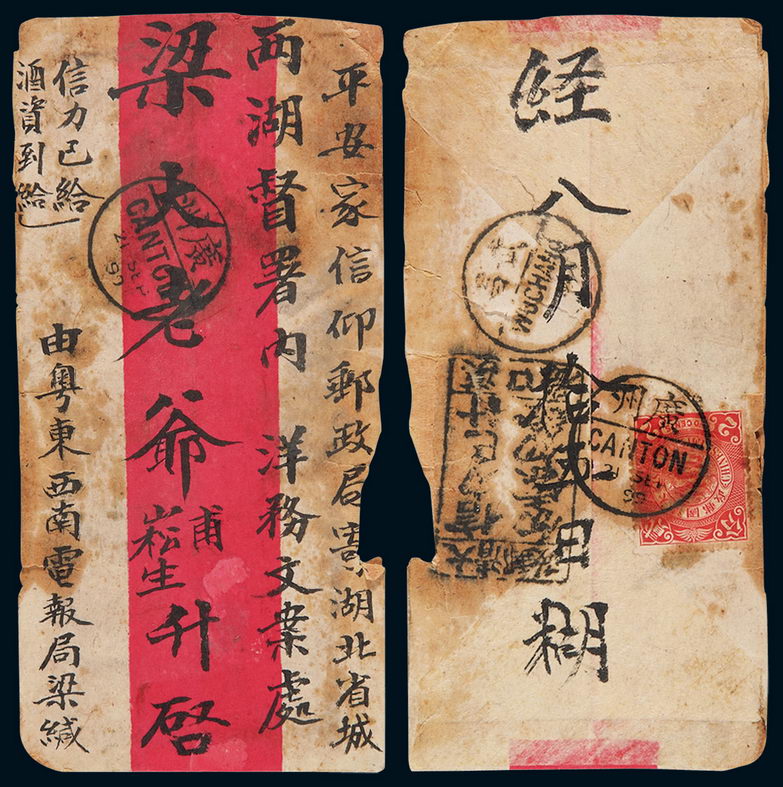 平安家信仰郵政局寄湖北省城
两湖督署内 洋務文案處
梁大老爺 甫崧生 升啓
信力已給
酒資到給
由粵東西南電報局梁緘
廣州
CANTON
21 SEP
99
経八月拾五日糊
WUCHANG
廣州
CANTON
21 SEP
99